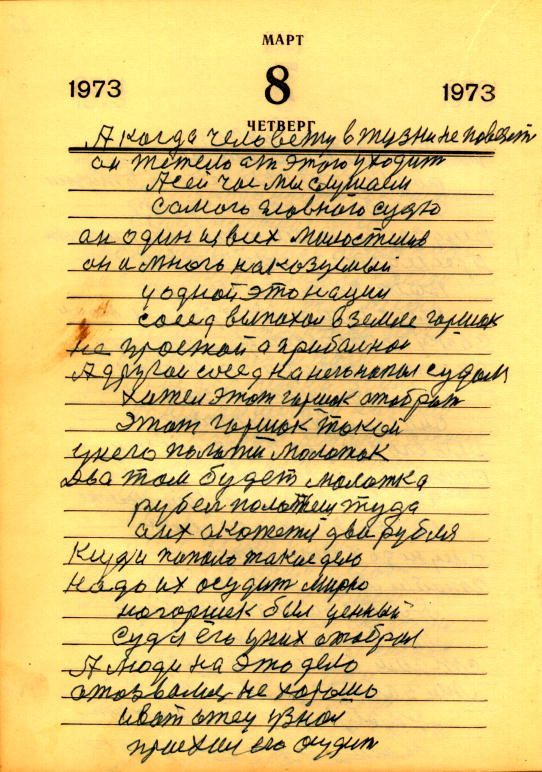 МАРТ
1973 8 1973
ЧЕТВЕРГ
А когда человеку в жизни не повезёт
он тежело от этого уходит
Асей час мы слушаем
самого главного судю
он один из всех милостилив
он и много наказуемый
у одной это нации
сосед выпохол в земле горшок
не простой а прибалной
А другой сосед на него попол судом
хотел этот горшок отобрат
этот горшок токой
унего полажи молоток
два том будет молотка
рубел положеш туда
а их окажетй два рубля
Куди попало такое дело
надо их осудит мирно
ногоршек был ценный
Судя его у них отобрал
А люди на это дело
отозвалис не хорошо
и вот отец
приехал его судит